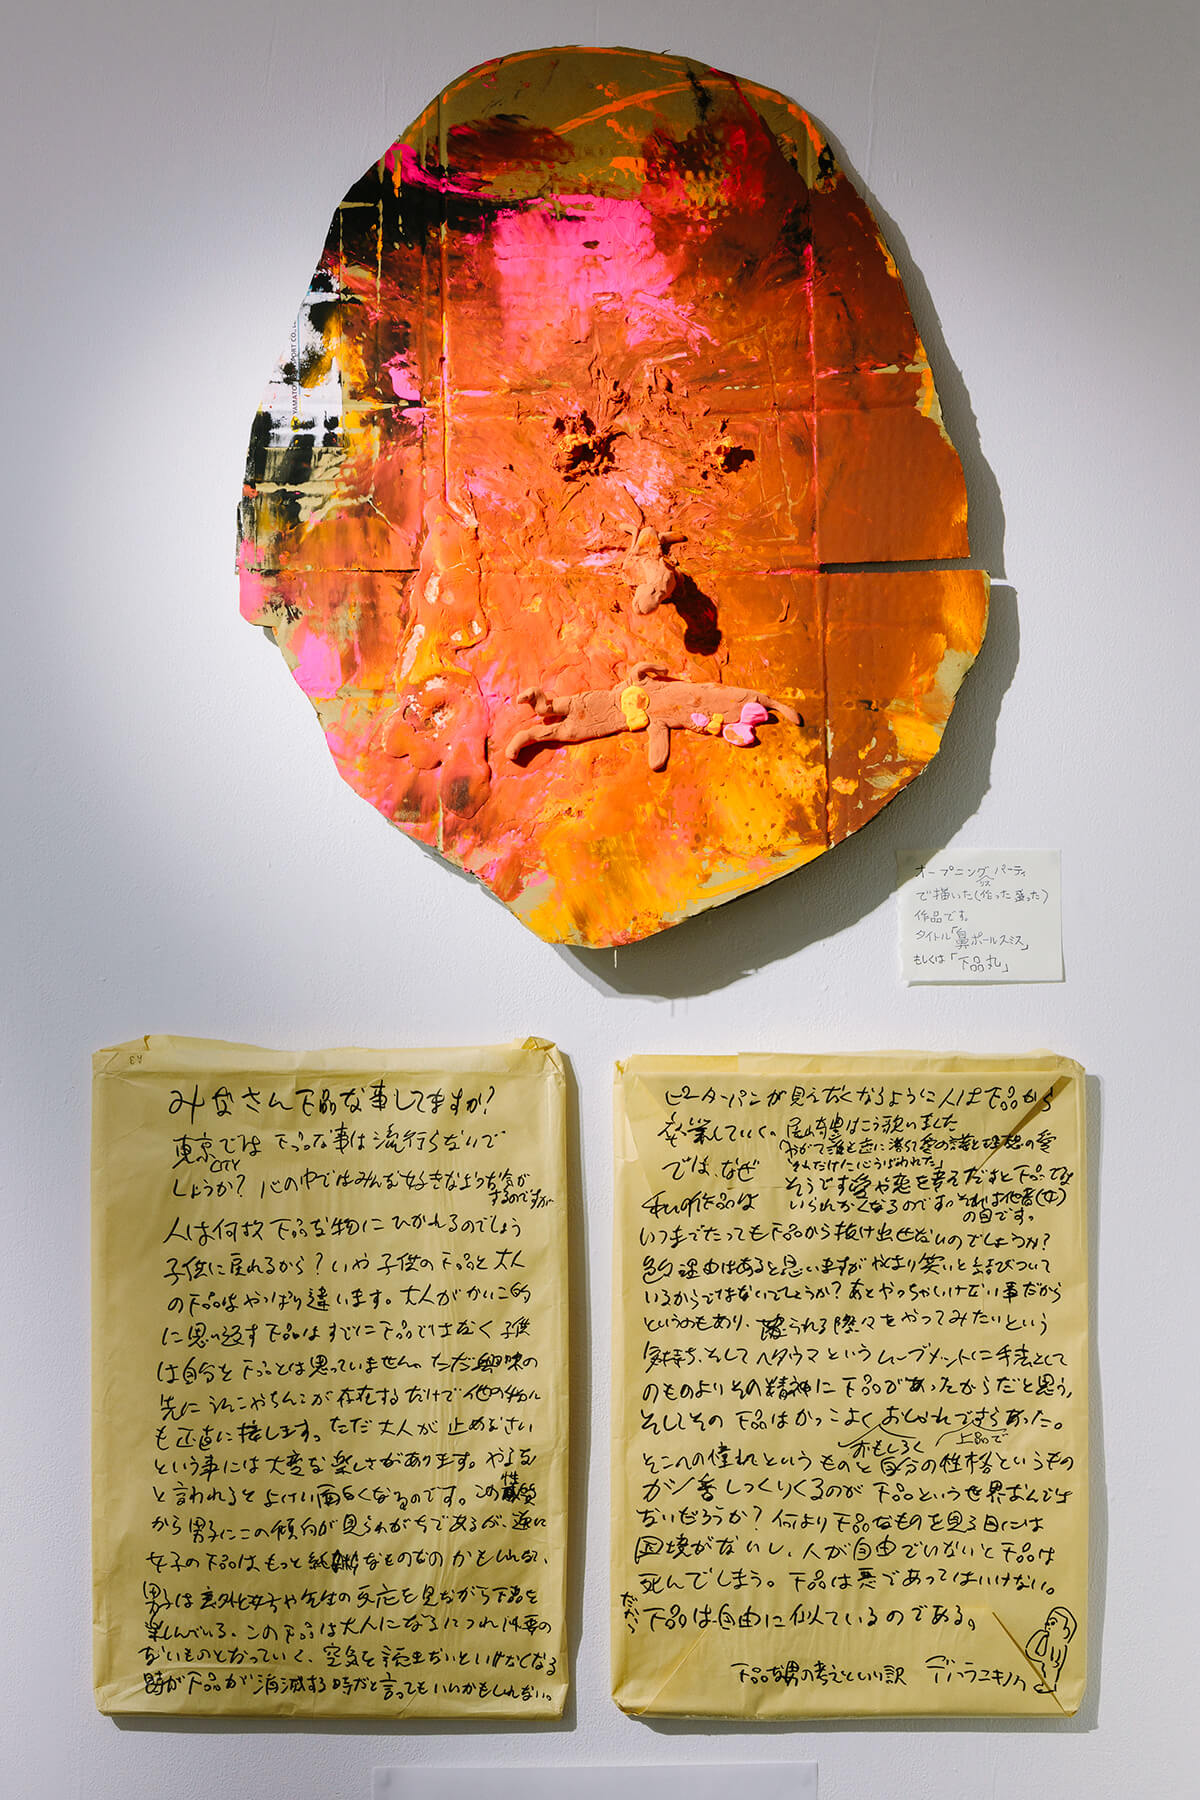 YAMATO
PORT CO., L
オープニングパーティ
で描いた(作った 盛った)
作品です。
タイトル「鼻ポールスミス」
もしくは「下品丸」
A3
みなさん下品な事してますか?
東京では 下品な事は流行らないで
CITY
しょうか? 心の中ではみんな好きなような気が
するのですが
人は何故 下品な物にひかれるのでしょう
子供に戻れるから? いや 子供の下品と大人
の下品はやっぱり違います。大人がかいこ的
に思い返す下品はすでに下品ではなく 子供
は自分を下品とは思っていません。ただ興味の
先にうんこやちんこが存在するだけで他の物に
も正直に接します。ただ大人が 止めなさい
という事には 大変な 楽しさがあります。やるな
と言われると よけい面白くなるのです。この性質
から男子にこの傾向が見られがちであるが、逆に
女子の下品は、もっと なものなのかもしれない、
男子は意外と女子や先生の反応を見ながら下品を
楽しんでいる、この下品は大人になるにつれ必要の
ないものとなっていく、空気を読まないといけなくなる
時が下品が消滅する時だと言ってもいいかもしれない。
ピーターパンが見えなくなるように人は下品から
卒業していく。尾崎豊はこう歌いました
「やがて誰と恋に落ちて愛の言葉と理想の愛
それだけに心うばわれた」
では、なぜ
そうです愛や恋を考えだすと下品で
いられなくなるのです。それは他者(女)
の目です。
私の作品は
いつまでたっても下品から抜け出せないのでしょうか?
色々理由はあると思いますがやはり笑いと結びついて
いるからではないでしょうか? あとやっちゃいけない事だから
というのもあり、 られる をやってみたいという
気持ち、そしてヘタウマというムーブメントに手法として
のものよりその精神に下品があったからだと思う。
そしてその下品はかっこよくおしゃれですらあった。
おもしろく
上品で
そこへの憧れというものと自分の性格というもの
が一番しっくりくるのが 下品という世界なんでは
ないだろうか? 何より下品なものを見る目には
国境がないし、人が自由でいないと下品は
死んでしまう。下品は悪であってはいけない。
だから
下品は自由に似ているのである。
下品な男の考えといい訳 デハラユキノリ